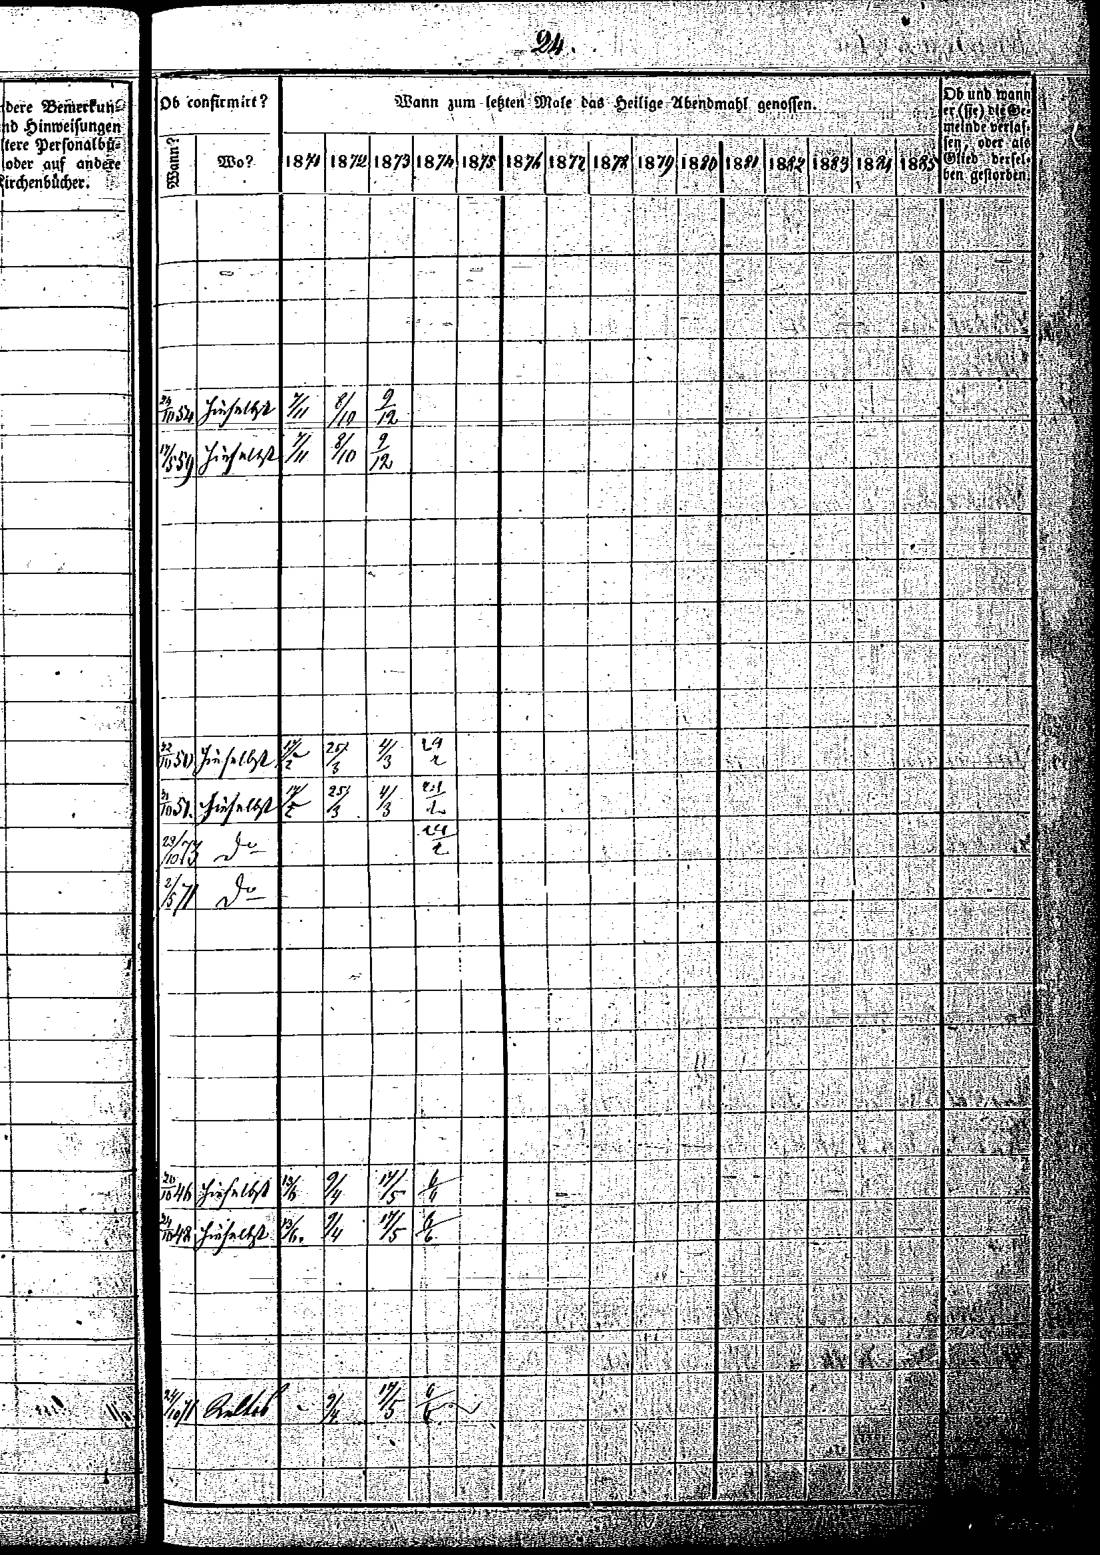 24.
dere Bemerkun-
nd Hinweisungen
tere Personalbü-
oder auf andere
irchenbücher.
Ob confirmirt?
Wann?
Wo?
Wann zum letzten Male das Heilige Abendmahl genossen.
1871 1872 1873 1874 1875 1876 1877 1878 1879 1880 1881 1882 1883 1884 1885
Ob und wann
er (sie) die Ge-
meinde verlas-
sen, oder als
Glied dersel-
ben gestorben.
24/10 54 hieselbst 7/11 8/10 9/12
17/5 59 hieselbst 7/11 8/10 9/12
22/10 50 hieselbst 17/2 25/3 4/3
hieselbst 17/2 25/3 4/3
29/10 73 do
2/5 71 do
20/10 46 hieselbst 13/6 9/4 17/5
24/10 42 hieselbst 13/6. 9/4 17/5 6/6
24/10 71 9/4 17/5 6/6